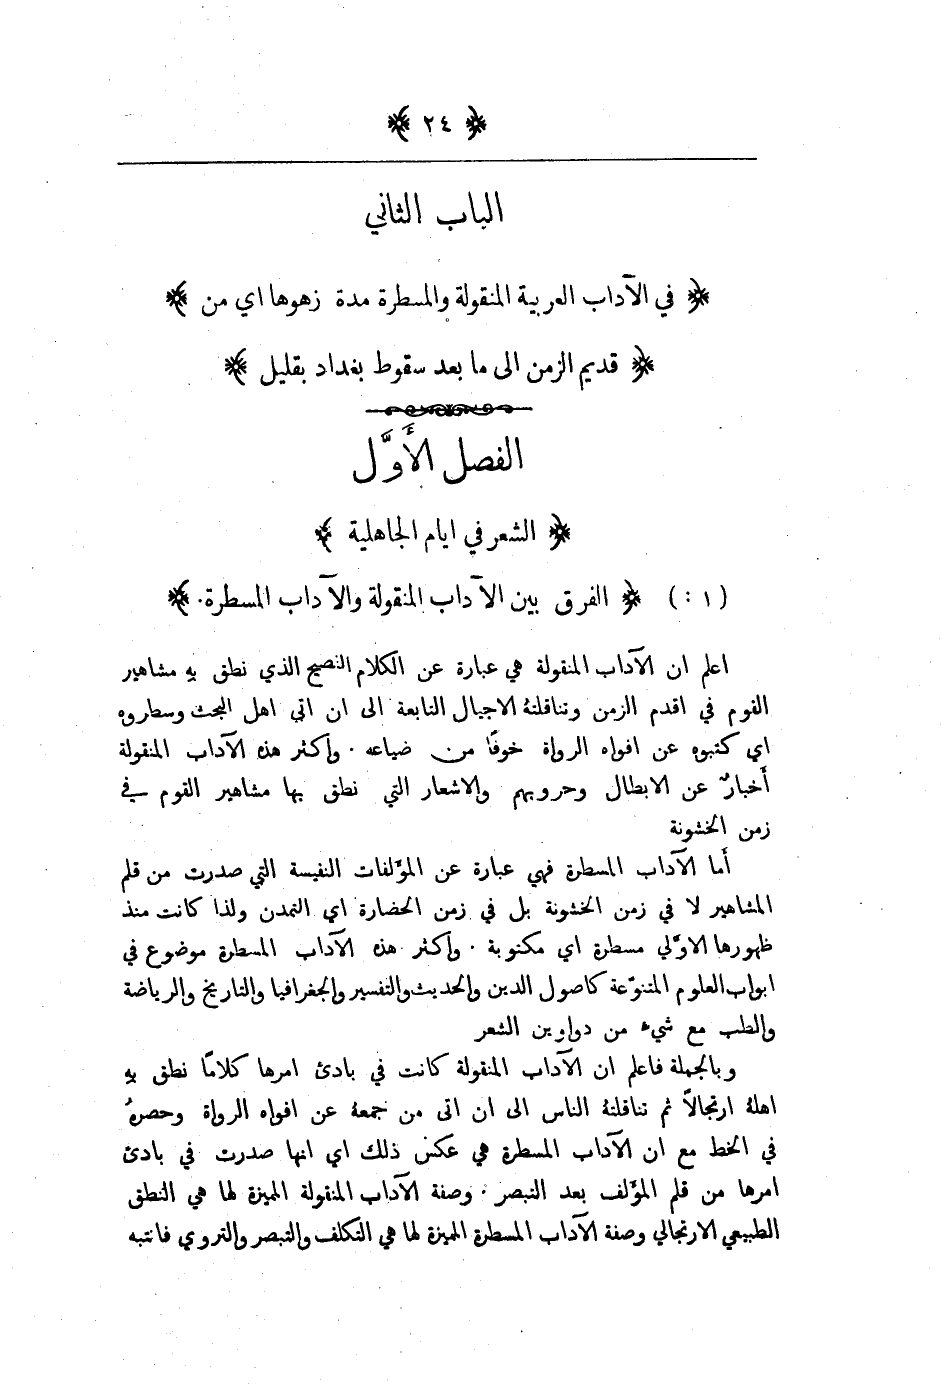 ﴿ ٢٤ ﴾
الباب الثاني
﴿ في الآداب العربية المنقولة والمسطرة مدة زهوها اي من ﴾
﴿ قديم الزمن الى ما بعد سقوط بغداد بقليل ﴾
الفصل الأَوَّل
﴿ الشعر في ايام الجاهلية ﴾
(١:) ﴿ الفرق بين الآداب المنقولة والآداب المسطرة. ﴾
اعلم ان الآداب المنقولة هي عبارة عن الكلام الفصيح الذي نطق بهِ مشاهير
القوم في اقدم الزمن وتناقلتهُ الاجيال التابعة الى ان اتى اهل البحث وسطروه
اي كتبوه عن افواه الرواة خوفًا من ضياعه . وأكثر هذه الآداب المنقولة
أخبارٌ عن الابطال وحروبهم والاشعار التي نطق بها مشاهير القوم في
زمن الخشونة
أما الآداب المسطرة فهي عبارة عن المؤلفات النفيسة التي صدرت من قلم
المشاهير لا في زمن الخشونة بل في زمن الحضارة اي التمدن ولذا كانت منذ
ظهورها الاوّلي مسطرة اي مكتوبة . وأكثر هذه الآداب المسطرة موضوع في
ابواب العلوم المتنوّعة كاصول الدين والحديث والتفسير والجغرافيا والتاريخ والرياضة
والطب مع شيء من دواوين الشعر
وبالجملة فاعلم ان الآداب المنقولة كانت في بادئ امرها كلامًا نطق بهِ
اهلهُ ارتجالاً ثم تناقلتهُ الناس الى ان اتى من جمعهُ عن افواه الرواة وحصرهُ
في الخط مع ان الآداب المسطرة هي عكس ذلك اي انها صدرت في بادئ
امرها من قلم المؤلف بعد التبصر . وصفة الآداب المنقولة المميزة لها هي النطق
الطبيعي الارتجالي وصفة الآداب المسطرة المميزة لها هي التكلف والتبصر والتروي فانتبه